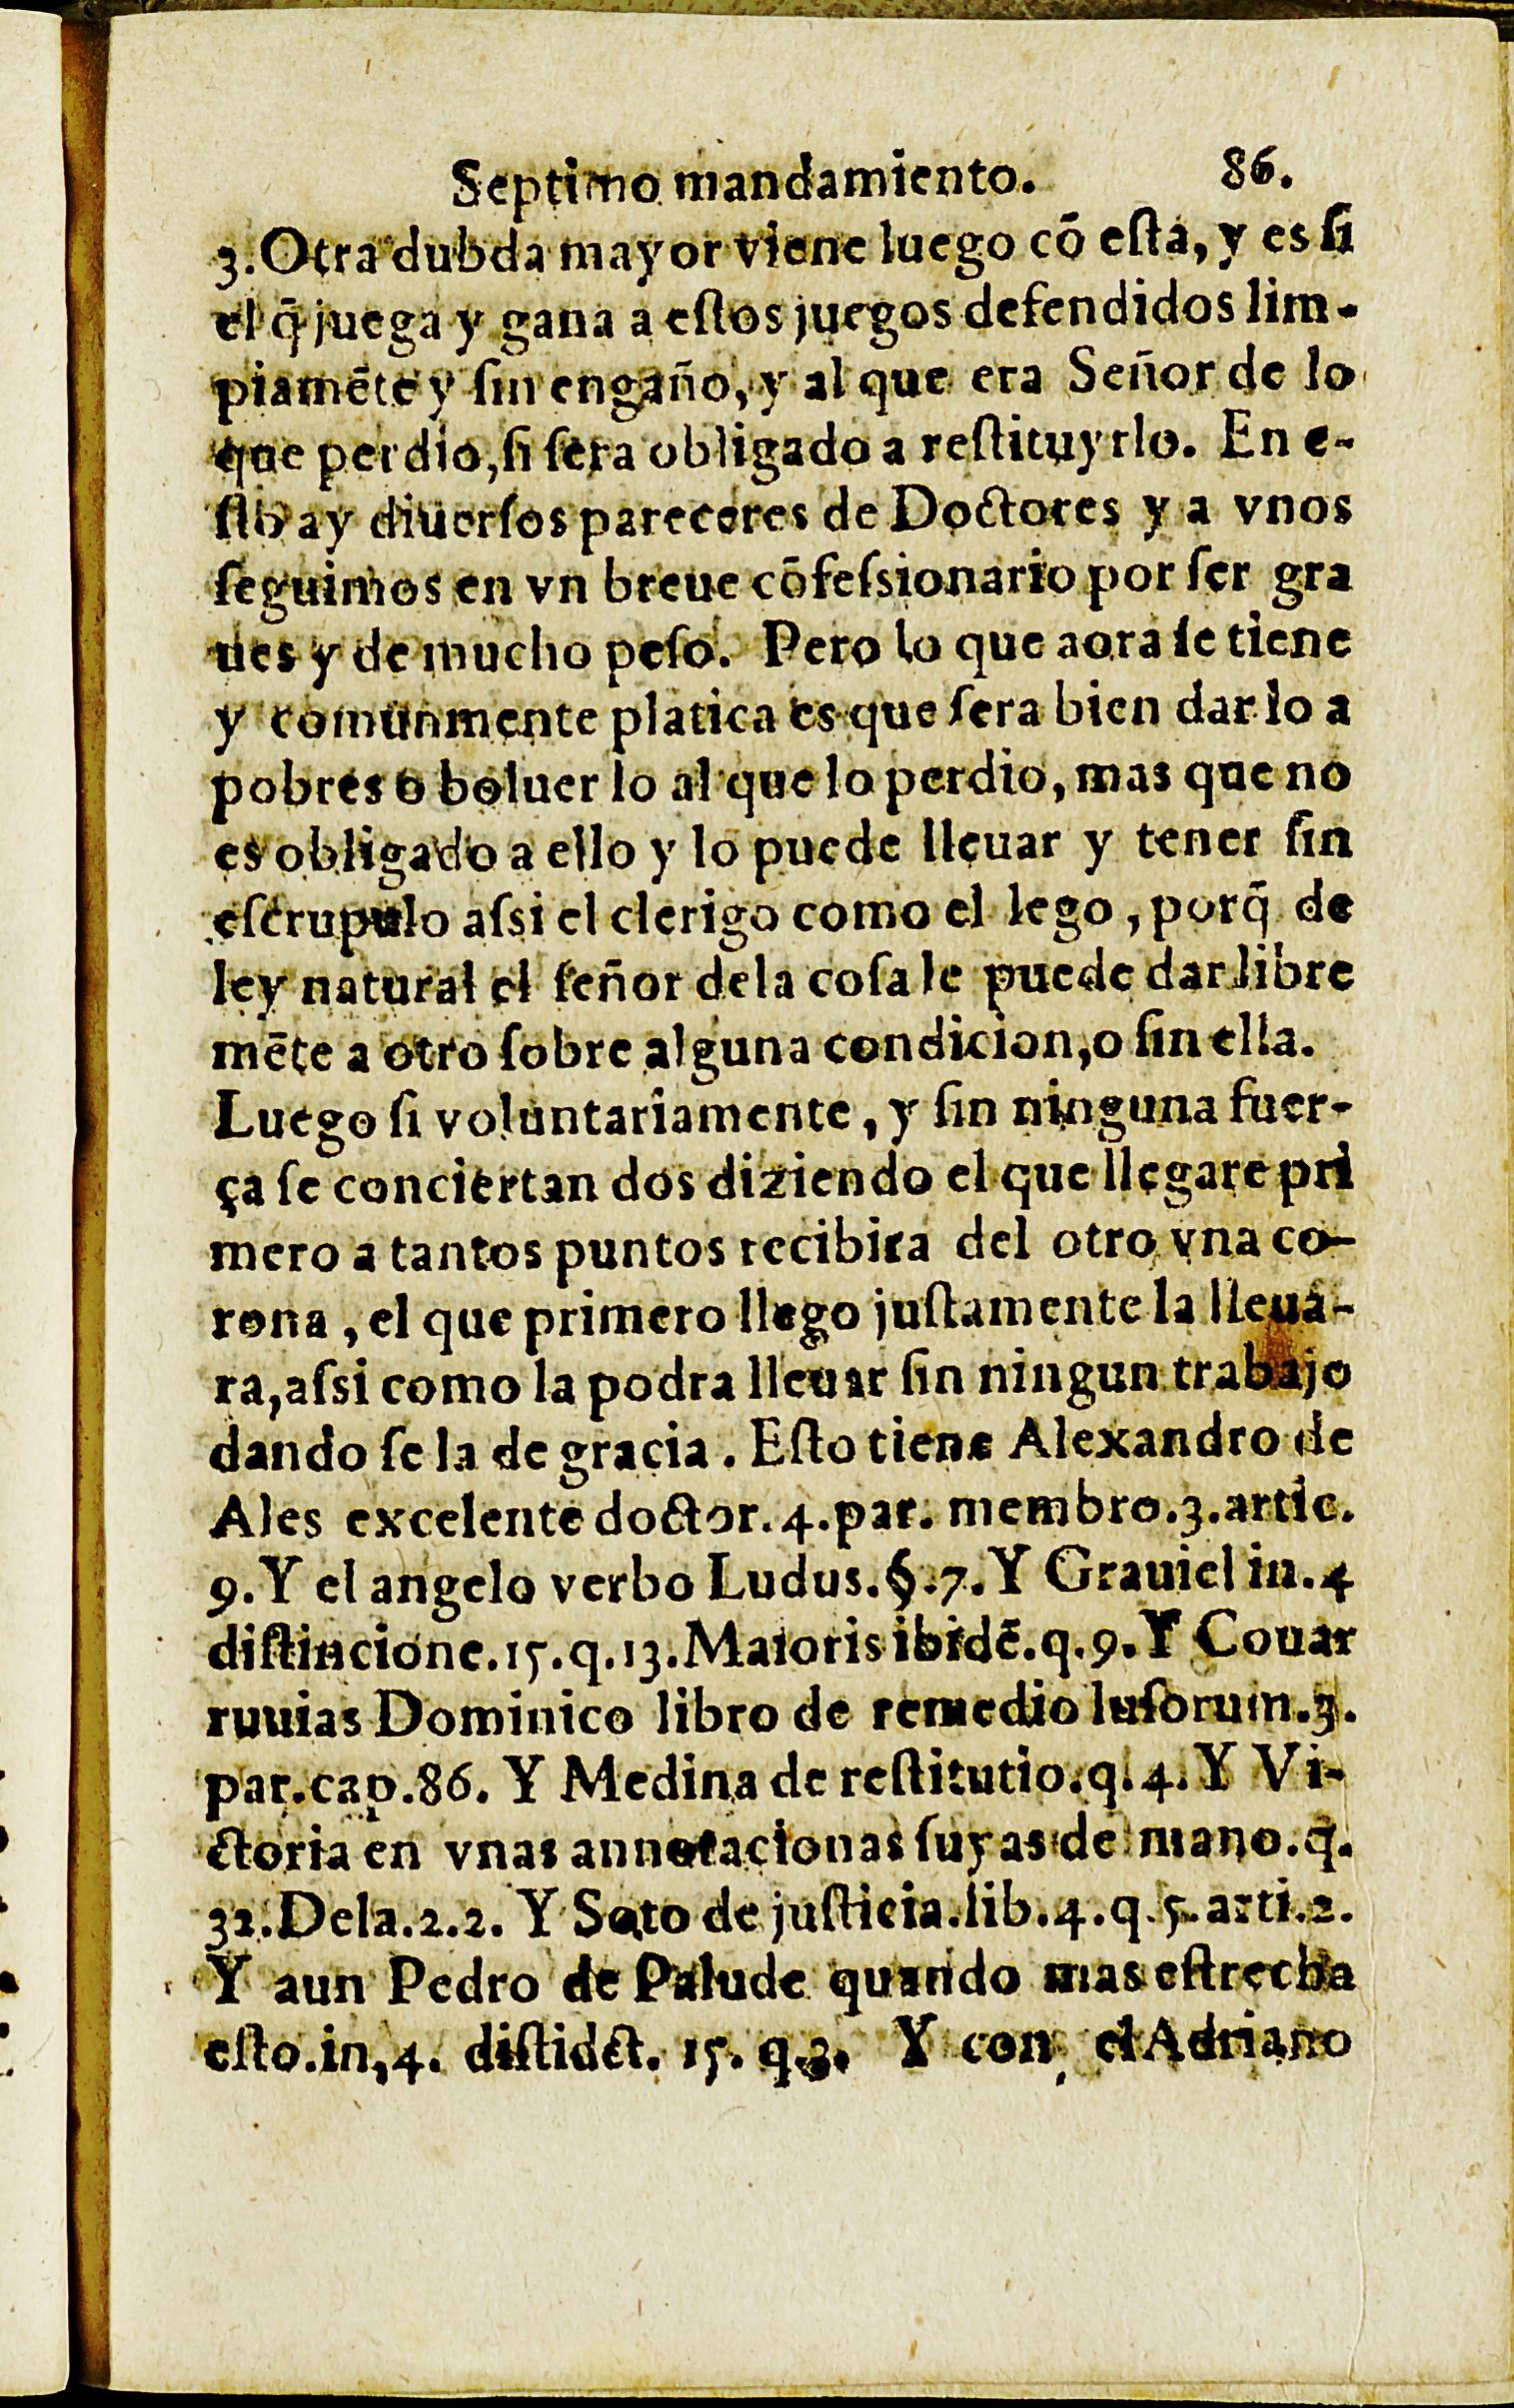 Septimo mandamiento. 86.
3. Otra dubda mayor viene luego cō eſta, y es ſi
el q̄ juega y gana a eſtos juegos defendidos lim-
piamēte y ſin engaño, y al que era Señor de lo
que perdio, ſi ſera obligado a reſtituyrlo. En e-
ſto ay diuerſos pareceres de Doctores y a vnos
ſeguimos en vn breue cōfeſsionario por ſer gra
ues y de mucho peſo. Pero lo que aora ſe tiene
y comunmente platica es que ſera bien dar lo a
pobres o boluer lo al que lo perdio, mas que no
es obligado a ello y lo puede lleuar y tener ſin
eſcrupulo aſsi el clerigo como el lego, porq̄ de
ley natural el ſeñor dela coſa le puede dar libre
mēte a otro ſobre alguna condicion, o ſin ella.
Luego ſi voluntariamente, y ſin ninguna fuer-
ça ſe conciertan dos diziendo el que llegare pri
mero a tantos puntos recibira del otro vna co-
rona, el que primero llego juſtamente la lleua-
ra, aſsi como la podra lleuar ſin ningun trabajo
dando ſe la de gracia. Eſto tiene Alexandro de
Ales excelente doctor. 4. par. membro. 3. artic.
9. Y el angelo verbo Ludus. §. 7. Y Grauiel in. 4
diſtincione. 15. q. 13. Maioris ibidē. q. 9. Y Couar
ruuias Dominico libro de remedio luſorum. 3.
par. cap. 86. Y Medina de reſtitutio. q. 4. Y Vi-
ctoria en vnas annotacionas ſuyas de mano. q.
32. Dela. 2. 2. Y Soto de juſticia. lib. 4. q. 5. arti. 2.
Y aun Pedro de Palude quando mas eſtrecha
eſto. in, 4. diſtidct. 15. q. 3. Y con el Adriano